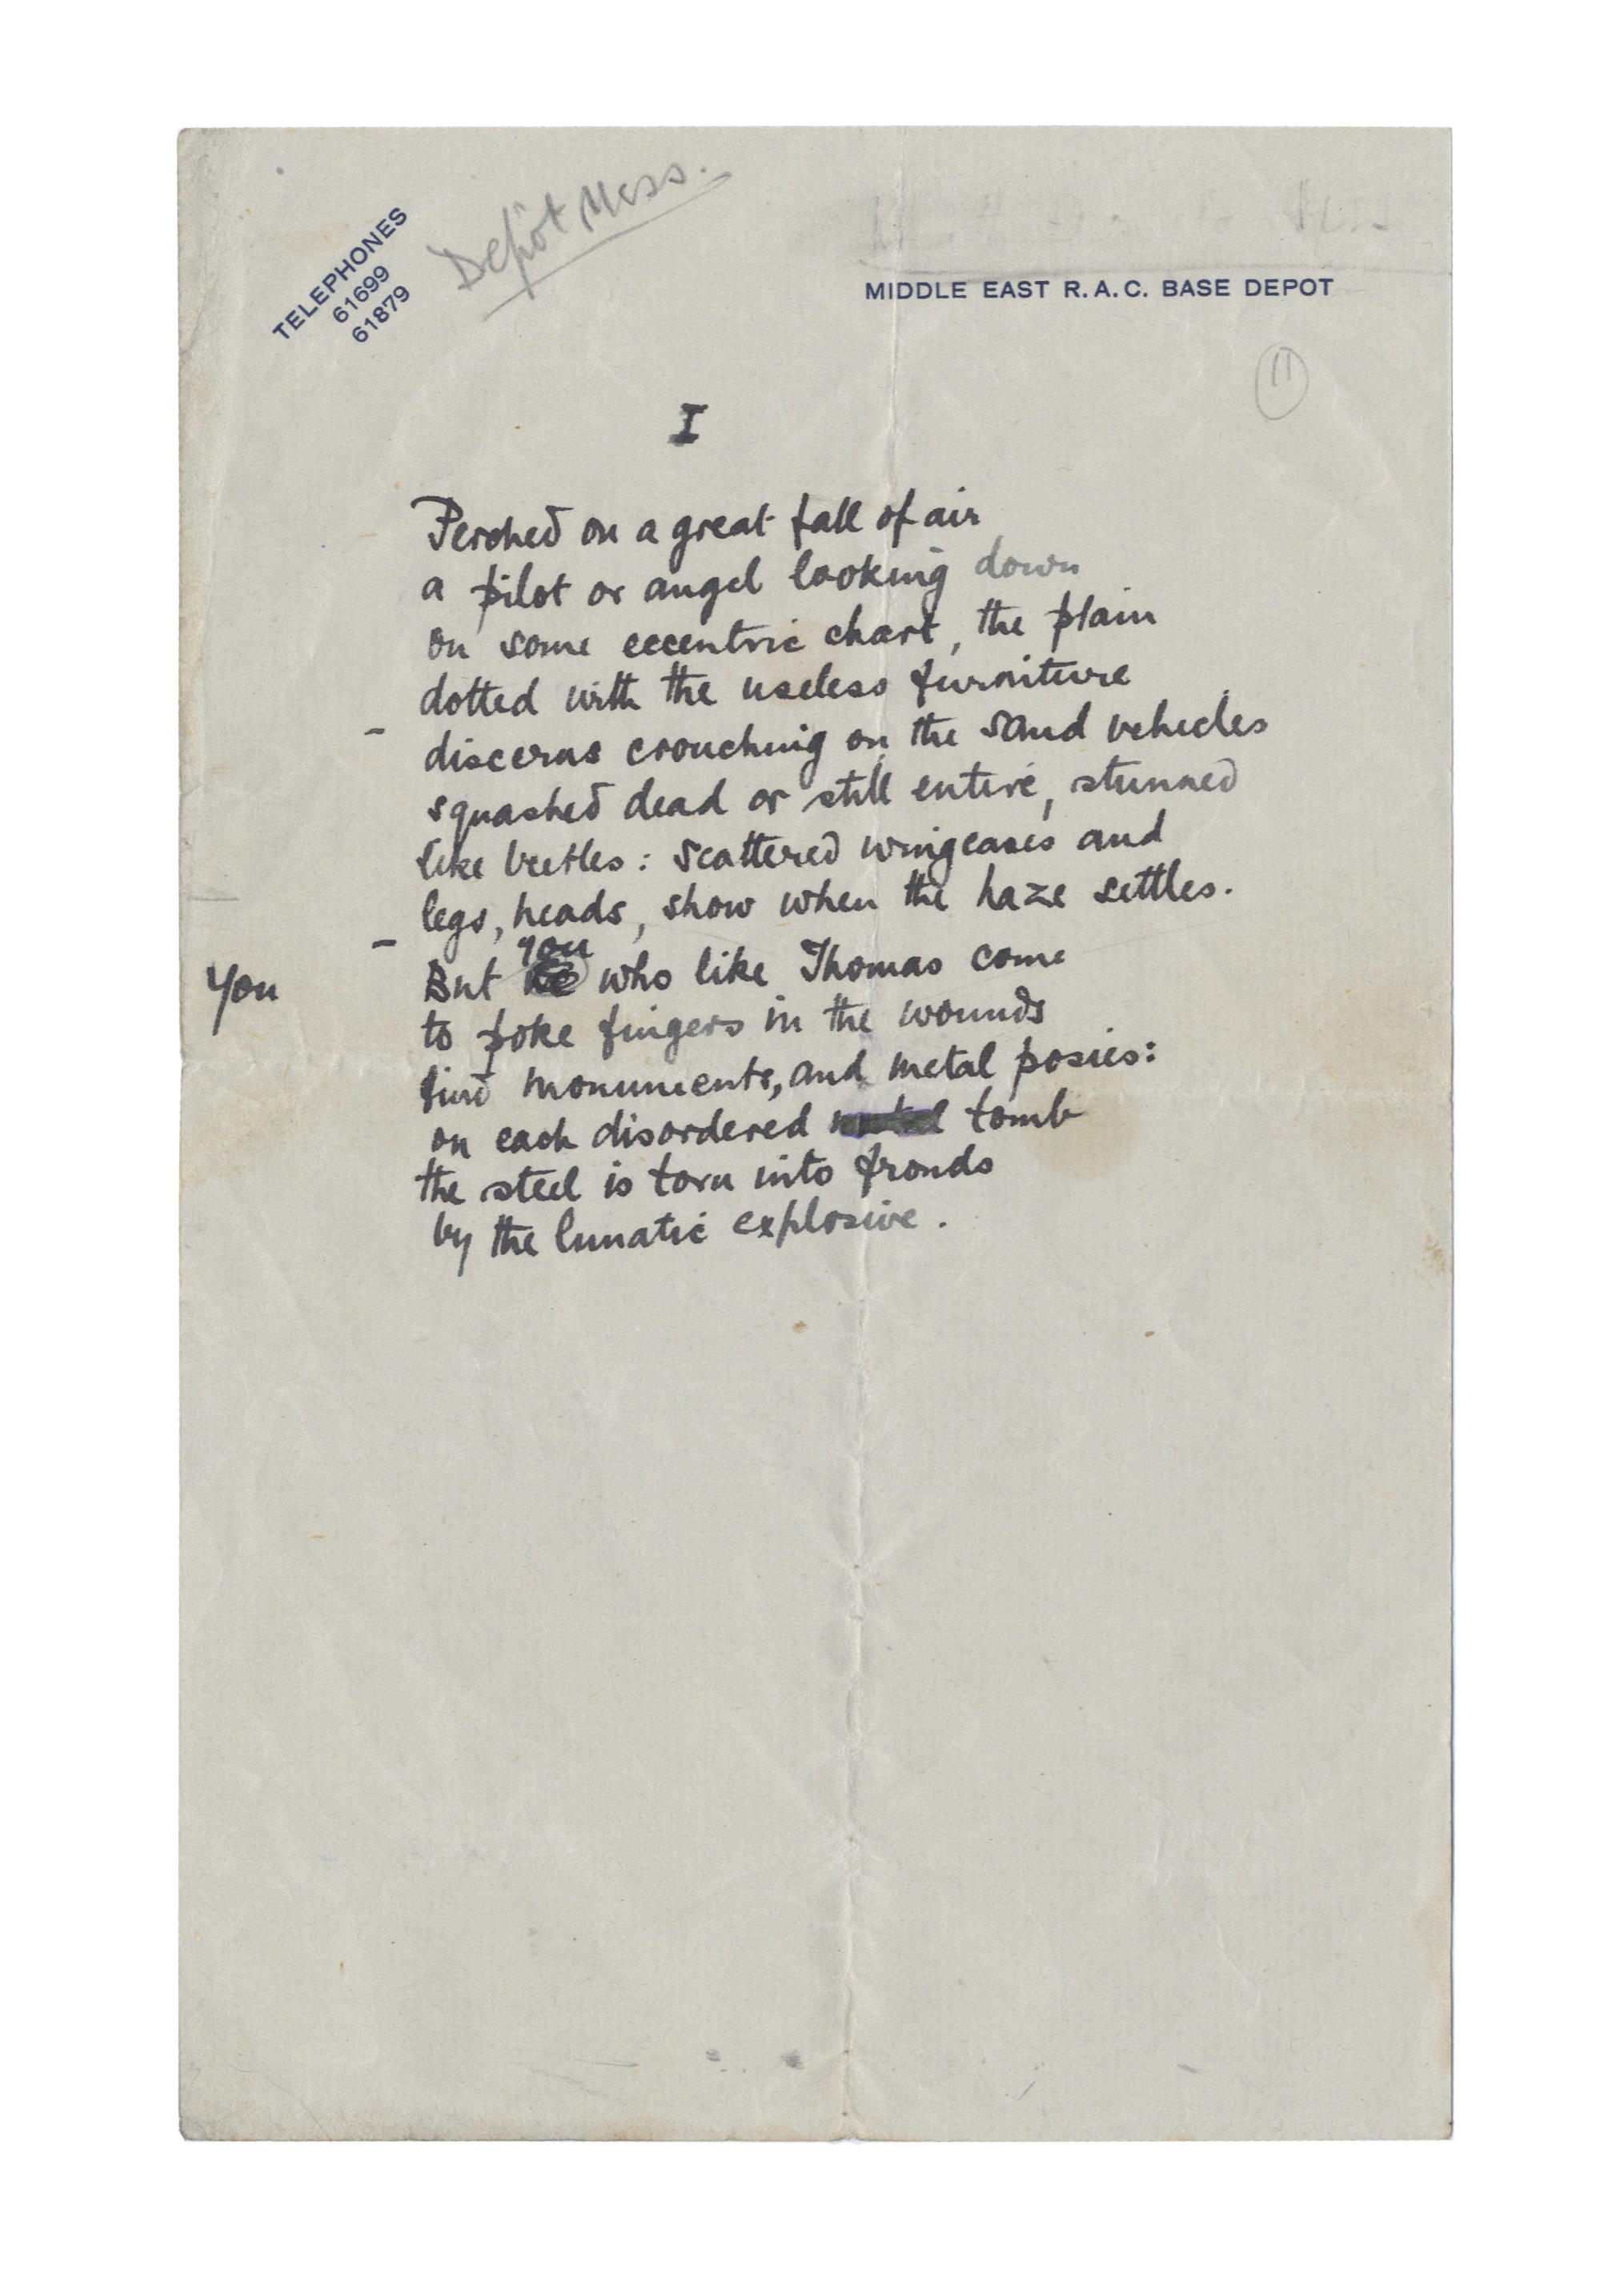 TELEPHONES
61699
61879
Depôt Mess.
MIDDLE EAST R.A.C. BASE DEPOT
11
I
Perched on a great fall of air
a pilot or angel looking down
on some eccentric chart, the plain
dotted with the useless furniture
- discerns crouching on the sand vehicles
squashed dead or still entire, stunned
like beetles: scattered wingcases and
legs, heads, show when the haze settles.
- you
You But who like Thomas come
to poke fingers in the wounds
find monuments, and metal posies:
on each disordered tomb
the steel is torn into fronds
by the lunatic explosive.